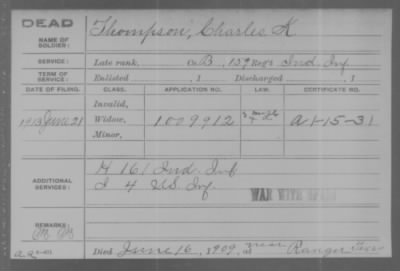 DEAD
NAME OF SOLDIER: Thompson, Charles K
SERVICE: Late rank, Co. B, 159 Reg't Ind. Inf
TERM OF SERVICE: Enlisted , 1 Discharged , 1
DATE OF FILING. CLASS. APPLICATION NO. LAW. CERTIFICATE NO.
Invalid,
1913 June 21 Widow, 1009912 A1-15-31
Minor,
ADDITIONAL SERVICES: H 161 Ind. Inf
I 4 U.S. Inf.
WAR WITH SPAIN
REMARKS:
Died June 16, 1909, at near Ranger Texas